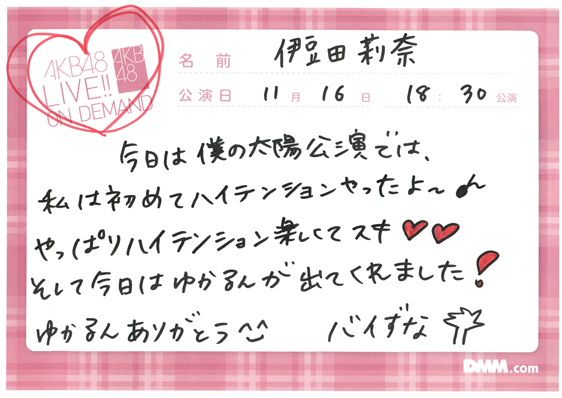 AKB48
LIVE!!
ON DEMAND
AKB
48
名前 伊豆田莉奈
公演日 11月16日 18:30公演
今日は僕の太陽公演では、
私は初めてハイテンションやったよ〜♪
やっぱりハイテンション楽しくてスキ♥♥
そして今日はゆかるんが出てくれました!
ゆかるんありがとう^^ バイずな
DMM.com